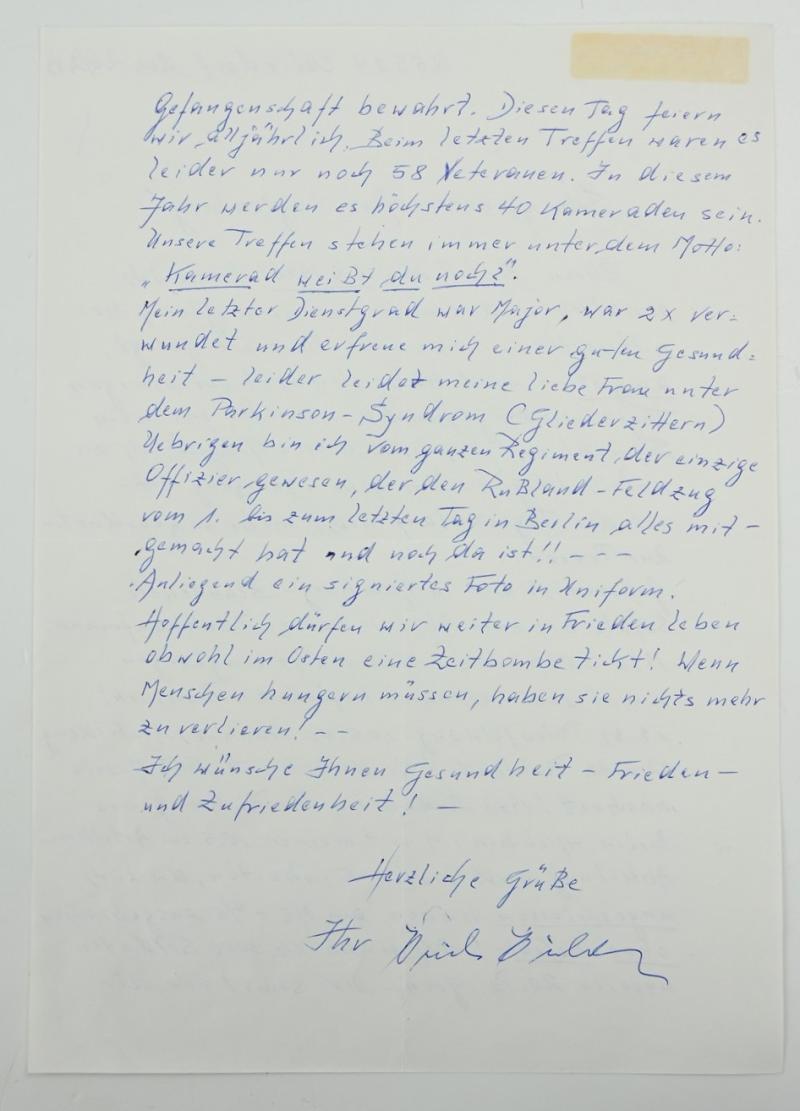 Gefangenschaft bewahrt. Diesen Tag feiern
wir alljährlich. Beim letzten Treffen waren es
leider nur noch 58 Veteranen. In diesem
Jahr werden es höchstens 40 Kameraden sein.
Unsere Treffen stehen immer unter dem Motto:
„Kamerad weißt du noch?".
Mein letzter Dienstgrad war Major, war 2x ver=
wundet und erfreue mich einer guten Gesund=
heit – leider leidet meine liebe Frau unter
dem Parkinson-Syndrom (Gliederzittern)
Uebrigen bin ich vom ganzen Regiment, der einzige
Offizier gewesen, der den Rußland-Feldzug
vom 1. bis zum letzten Tag in Berlin alles mit-
gemacht hat und noch da ist!! - - -
Anliegend ein signiertes Foto in Uniform.
Hoffentlich dürfen wir weiter in Frieden leben
obwohl im Osten eine Zeitbombe tickt! Wenn
Menschen hungern müssen, haben sie nichts mehr
zu verlieren! - -
Ich wünsche Ihnen Gesundheit – Frieden –
und Zufriedenheit! –
Herzliche Grüße
Ihr